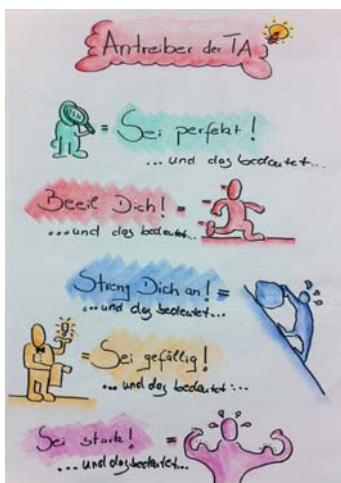 Antreiber der TA
= Sei perfekt!
... und das bedeutet...
Beeil Dich! =
... und das bedeutet...
Streng Dich an! =
... und das bedeutet...
= Sei gefällig!
... und das bedeutet...
Sei stark! =
... und das bedeutet...